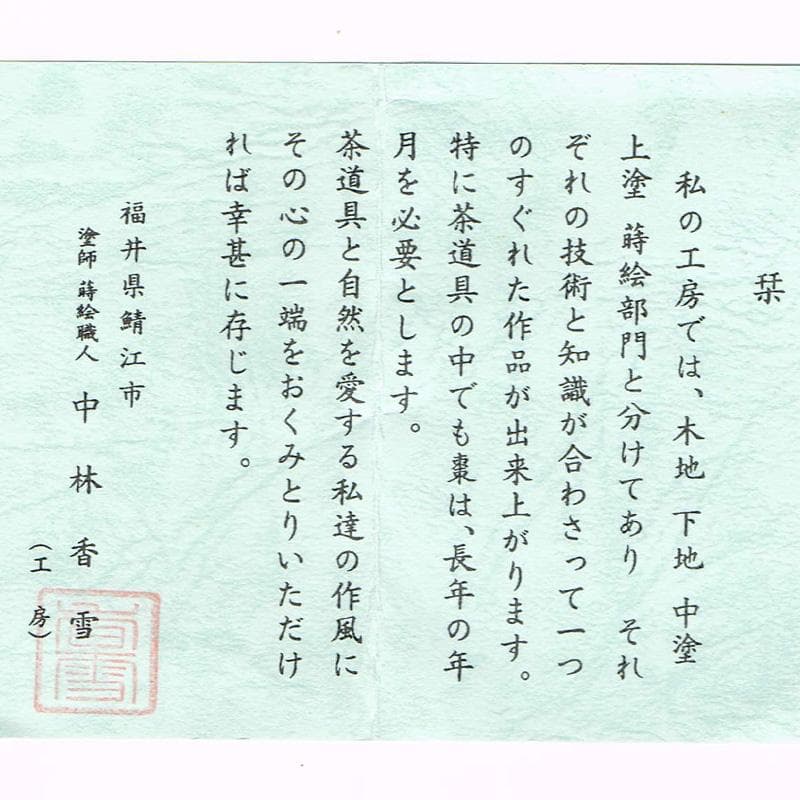 栞
私の工房では、木地 下地 中塗
上塗 蒔絵部門と分けてあり それ
ぞれの技術と知識が合わさって一つ
のすぐれた作品が出来上がります。
特に茶道具の中でも棗は、長年の年
月を必要とします。
茶道具と自然を愛する私達の作風に
その心の一端をおくみとりいただけ
れば幸甚に存じます。
福井県鯖江市
塗師 蒔絵職人 中林香雪
(工房)
香雪